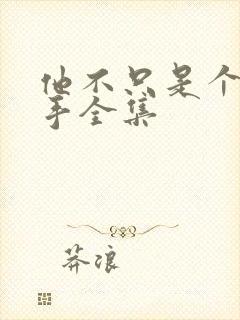 他不只是个
手全集
莽浪